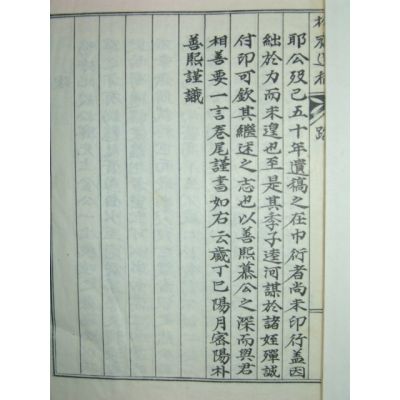 遺稿
跋
耶公歿已五十年遺稿之在巾衍者尚未印行盖因
絀於力而未遑也至是其季子逵河謀於諸姪殫誠
付印可欽其繼述之志也以善熙慕公之深而與君
相善要一言卷尾謹書如右云歲丁巳陽月密陽朴
善熙謹識